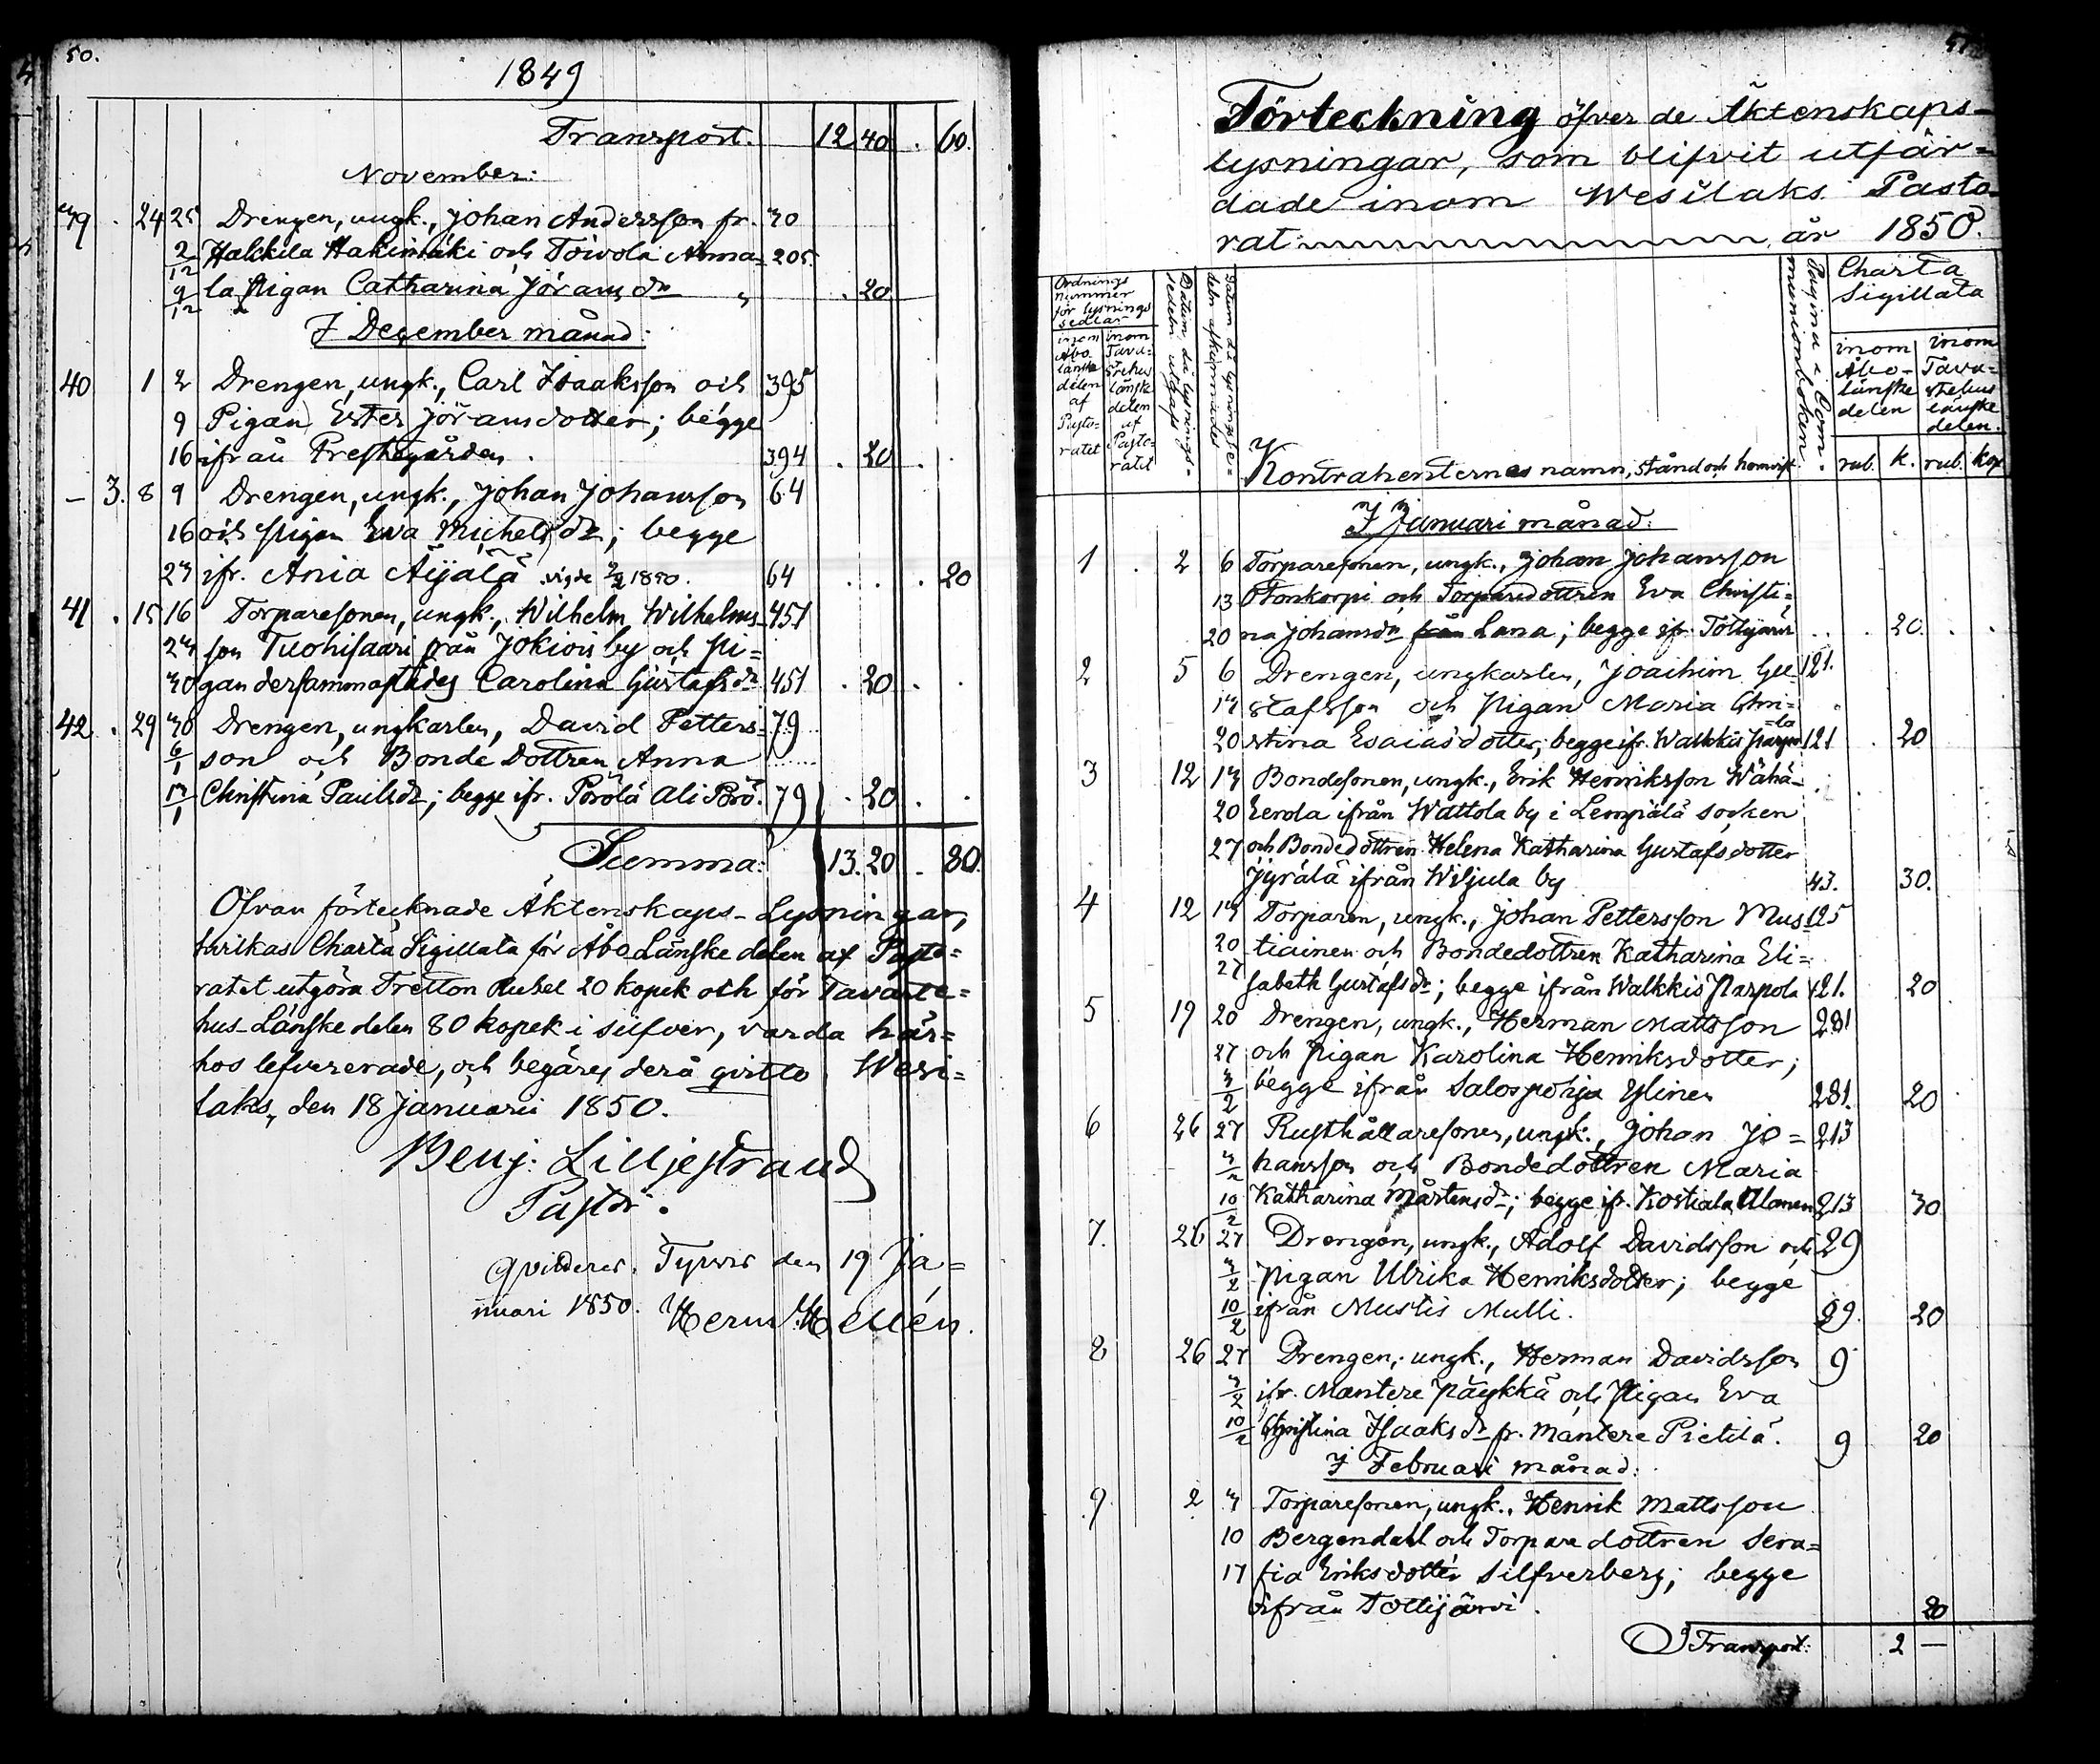 50.
1849
Transport. 12 40 . 60.
November:
39 . 24 25 Drengen, ungk., Johan Andersson fr. 30
2/12 Hakkila Hakimäki och Toivola Anna= 205.
9/12 la Pigan Catharina Jöransdr „ . 20.
I December månad:
40 1 2 Drengen, ungk., Carl Isaaksson och 395
9 Pigan Ester Jöransdotter; begge
16 ifrån Prestegården . 394 . 20 . .
— 3. 8 9 Drengen, ungk., Johan Johansson 64
16 och pigan Eva Michelsdr; begge
23 ifr. Ania Äijälä vigde 2/2 1850. 64 . . . 20
41 . 15 16 Torparesonen, ungk., Wilhelm Wilhelms- 451
23 son Tuohisaari från Jokiois by och Pi=
30 gan dersammastädes Carolina Gustafsdr 451 . 20 . .
42 . 29 30 Drengen, ungkarlen, David Petters= 79
6/1 son och Bonde Dottren Anna
13/1 Christina Paulsdr; begge ifr. Pörölä Ali Pörö. 79 . 20 . .
Summa: 13. 20 . 80.
Ofvan förtecknade Äktenskaps-Lysningar,
hvilkas Charta Sigillata för Åbo Länske delen af Pasto=
ratet utgöra Tretton Rubel 20 kopek och för Tavaste=
hus-Länske delen 80 kopek i silfver, varda här=
hos lefvererade, och begäres derå qvitto. Wesi=
laks, den 18 Januarii 1850.
Benj: Liljestrand
Pastor.
Qvitteres. Tyrvis den 19 Ja=
nuari 1850. Herm. Hellén.
51.
Förteckning öfver de Äktenskaps-
lysningar, som blifvit utfär=
dade inom Wesilaks Pasto-
rat år 1850.
Ordnings nummer för lysnings sedlar
inom Åbo länska delen af Pasto-ratet
inom Tava-stehus länska delen af Pasto-ratet
Datum, då lysnings-sedeln utgafs
Datum då lysningsse=deln afkunnades
Kontrahenternas namn, stånd och hemvist
Pagina i Com-munionboken.
Charta Sigillata
inom Åbo-länske delen
inom Tava=stehus länske delen.
rub. k. rub. kop
I Januari månad:
1 . 2 6 Torparesonen, ungk., Johan Johansson
13 Honkorpi och Torparedottren Eva Christi=
20 na Johansdr från Lana; begge ifr. Tottijärvi . . . 20. . .
2 5 6 Drengen, ungkarlen, Joachim Gu- 121.
13 stafsson och Pigan Maria Chri=
20 stina Esaiasdotter; begge ifr. Walkkis Parpo=la 121 . 20
3 12 13 Bondesonen, ungk., Erik Henriksson Wähä-
20 Eerola ifrån Wattola by i Lempiälä socken
27 och Bondedottren Helena Katharina Gustafsdotter
Jyrälä ifrån Wiljula by 43. 30.
4 12 13 Torparen, ungk., Johan Pettersson Mus- 125
20 tiainen och Bondedottren Katharina Eli=
27 sabeth Gustafsdr; begge ifrån Walkkis Parpola 121. 20
5 19 20 Drengen, ungk., Herman Mattsson 281
27 och Pigan Karolina Henriksdotter;
3/2 begge ifrån Salospohja Ylinen 281. 20
6 26 27 Rusthållaresonen, ungk., Johan Jo= 213
3/2 hansson och Bondedottren Maria
10/2 Katharina Mårtensdr; begge ifr. Kostiala Ulanen 213 30
7. 26 27 Drengen, ungk., Adolf Davidsson och 29
3/2 Pigan Ulrika Henriksdotter; begge
10/2 ifrån Mustis Mulli. 29. 20
8 26 27 Drengen, ungk., Herman Davidsson 9
3/2 ifr. Mantere Päykkä och Pigan Eva
10/2 Christina Isaaksdr fr. Mantere Pietilä. 9 20
I Februari månad:
9 2 3 Torparesonen, ungk., Henrik Mattsson
10 Bergendahl och Torparedottren Sera=
17 fia Eriksdotter Silfverberg; begge
ifrån Tottijärvi. 20
Transport: 2 —